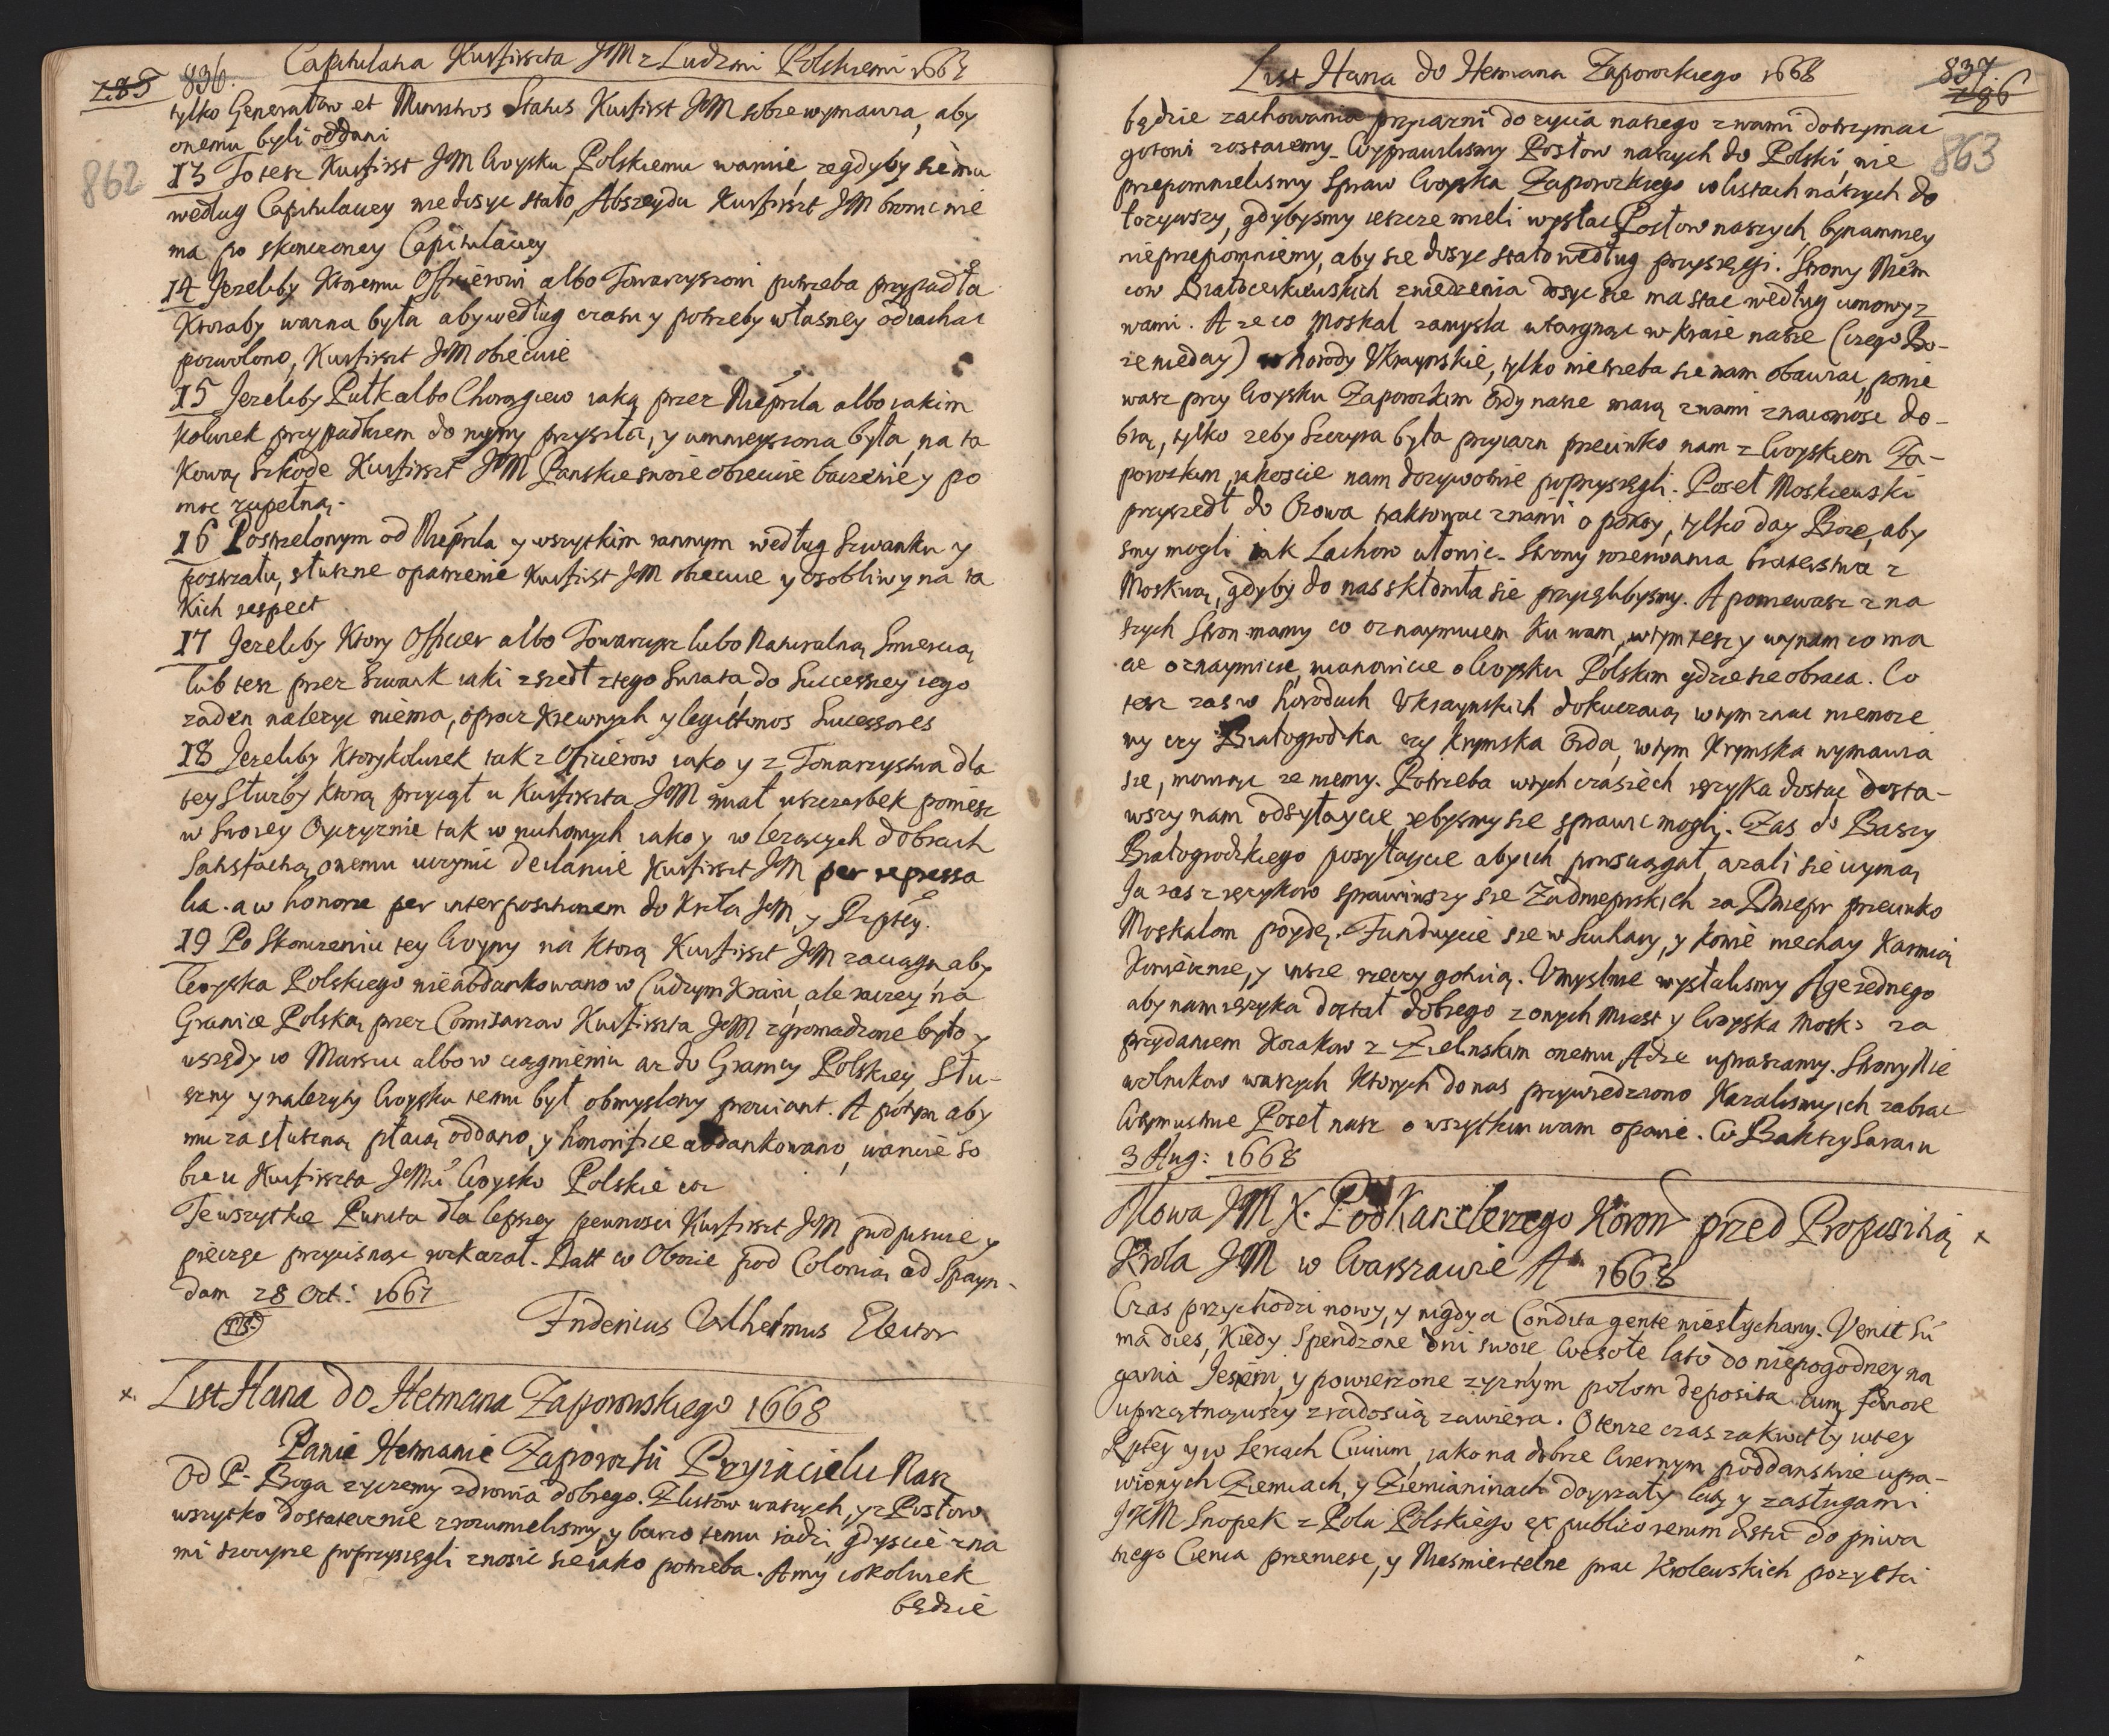 285 836. Capitulatia Kurfirszta JM z Ludzmi Polskiemi 1667
tylko Generałow et Ministros Status Kurfirst JM sobie wymawia, aby
onemu byli oddani
862
13 To tesz Kurfirszt JM Woysku Polskiemu waruie, ze gdyby sie mu
według Capitulacyey nie dosyc stało, Abszeydu Kurfirszt JM bronic nie
ma po skonczoney Capitulacyey
14 Jezeliby Ktoremu Officierowi albo Towarzyszowi potrzeba przypadła
Ktoraby wazna była aby według czasu y potrzeby własney odiachac
pozwolono, Kurfirszt JM obiecuie
15 Jezeliby Pułk albo Chorągiew iaka przez Nieprzla albo iakim
kolwiek przypadkiem do ruyny przyszła, y umnieyszona była, na ta
kową Szkode Kurfirszt JM Panskie swoie obiecuie baczenie y po
moc zupełną.
16 Postrzelonym od Nieprzla y wszytkim rannym według Szwanku y
postrzału, słuszne opatrzenie Kurfirszt JM obiecuie y osobliwy na ta
kich respect
17 Jezeliby Ktory Officier albo Towarzysz lubo Naturalną Smiercią
lub tesz przez Szwank iaki zszedł z tego Swiata, do Successyey iego
zaden nalezyc niema, oprocz Krewnych y legittimos Successores
18 Jezeliby Ktorykolwiek tak z Oficierow iako y z Towarzystwa dla
tey Słuzby Ktorą przyiął u Kurfirszta JM miał uszczerbek poniesc
w Swoiey Oyczyznie tak w ruchomych iako y w lezących dobrach
Satisfactią onemu uczynic declaruie Kurfirszt JM per repressa
lia. a w honorze per interpositionem do Krla JM y Rzptey.
19 Po Skonczeniu tey Woyny na Ktorą Kurfirszt JM zaciąga, aby
Woyska Polskiego nie abdankowano w Cudzym Kraiu, ale raczey na
Granice Polską przez Comisarzow Kurfirszta JM zgromadzone było y
wszędy w Marszu albo w ciągnieniu az do Granicy Polskiey słu-
szny y nalezyty Woysku temu był obmyslony prowiant. A potym aby
mu za słuszną płacą oddano, y honorifice abdankowano, waruie so
bie u Kurfirszta JMci Woysko Polskie
Te wszytkie Puncta dla lepszey pewnosci Kurfirszt JM podpisuie y
pieczęc przycisnąc rozkazał. Datt w Obozie pod Colonią ad Spayn-
dam 28 Oct: 1667
LS Fridericus Wilhelmus Elector
x List Hana do Hetmana Zaporowskiego 1668
Panie Hetmanie Zaporozki Przyiacielu Nasz
Od P. Boga zyczemy zdrowia dobrego. Z listow waszych, y z Posłow
wszytko dostatecznie zrozumielismy, y barzo temu radzi, gdyscie z na
mi szczyrze poprzysięgli znosic sie iako potrzeba. A my cokolwiek
będzie
List Hana do Hetmana Zaporozkiego 1668 837. 286
863
będzie zachowania przyiazni do zycia naszego z wami dotrzymac
gotowi zostaiemy. Wyprawilismy Posłow naszych do Polski, nie
przepomnielismy Spraw Woyska Zaporozkiego w listach naszych do
łozywszy, gdybysmy ieszcze mieli wysłac Posłow naszych bynamniey
nieprzepomniemy, aby sie dosyc stało według przysięgi. Strony Niem
cow Białocerkiewskich zwiedzenia dosyc sie ma stac według umowy z
wami. A ze co Moskal zamysla wtargnąc w Kraie nasze (czego Bo-
ze nieday) w horody Vkraynskie, tylko nie trzeba sie nam obawiac, ponie
wasz przy Woysku Zaporozkim Ordy nasze maią z wami znaiomosc do-
brą, tylko zeby Szczyra była przyiazn przeciwko nam z Woyskiem Za-
porozkim, iakoscie nam dozywotnie poprzysięgli. Poseł Moskiewski
przyszedł do Ozowa traktowac z nami o pokoy, tylko day Boze, aby
smy mogli iak Lachow ułowic. Strony rozerwania braterstwa z
Moskwą, gdyby do nas skłoniła sie przyięlibysmy. A poniewasz z na
szych Stron mamy co oznaymuiem Ku wam, w tym tesz y wy nam co ma
cie oznaymicie, mianowicie o Woysku Polskim gdzie sie obraca. Co
tesz zas w horodach Vkraynskich dokuczaią w tym znac niemoze
my czy Białogrodzka czy Krymska Orda, w tym Krymska wymawia
sie, mowiąc ze niemy. Potrzeba w tych czasiech ięzyka dostac dosta-
wszy nam odsyłaycie zebysmy sie sprawic mogli. Zas do Baszy
Białogrodzkiego posyłaycie aby ich powsciągał, azali sie uymą
Ja zas z ięzykow sprawiwszy sie Zadnieprskich za Dniepr przeciwko
Moskalom poydę. Funduycie sie w Suchary, y konie niechay Karmią
Koniecznie, y insze rzeczy gotuią. Vmyslnie wysłalismy Agę iednego
aby nam ięzyka dostał dobrego z onych Miast y Woyska Mosk: za
przydaniem Kozakow z Zielinskim onemu Adze upraszamy. Strony Nie
wolnikow waszych Ktorych do nas przywiedziono Kazalismy ich zabrac
Wtymustnie Poseł nasz o wszytkim wam opowie. W Bakczysaraiu
3 Aug: 1668
Mowa JM X. PodKanclerzego Koron przed Propositią x
Krola JM w Warszawie Ao 1668
Czas przychodzi nowy, y nigdy a Condita gente niesłychany. Venit Su
ma dies, Kiedy Spendzone dni swoie Wesołe lato do niepogodney na
gania Jesieni, y powierzone zyznym polom deposita cum fenore
uprzątnąwszy z radoscią zawiera. Otensze czas zakwitły w tey
Rptey y w Sercach Civium, iako na dobrze Wiernym poddanstwie upra-
wionych Ziemiach, y Ziemianinach doyrzały laty y zasługami
JKM Snopek z Pola Polskiego ex publico rerum Estu do priwa
tnego Cienia przeniesc, y Niesmiertelne prac Krolewskich pozytki